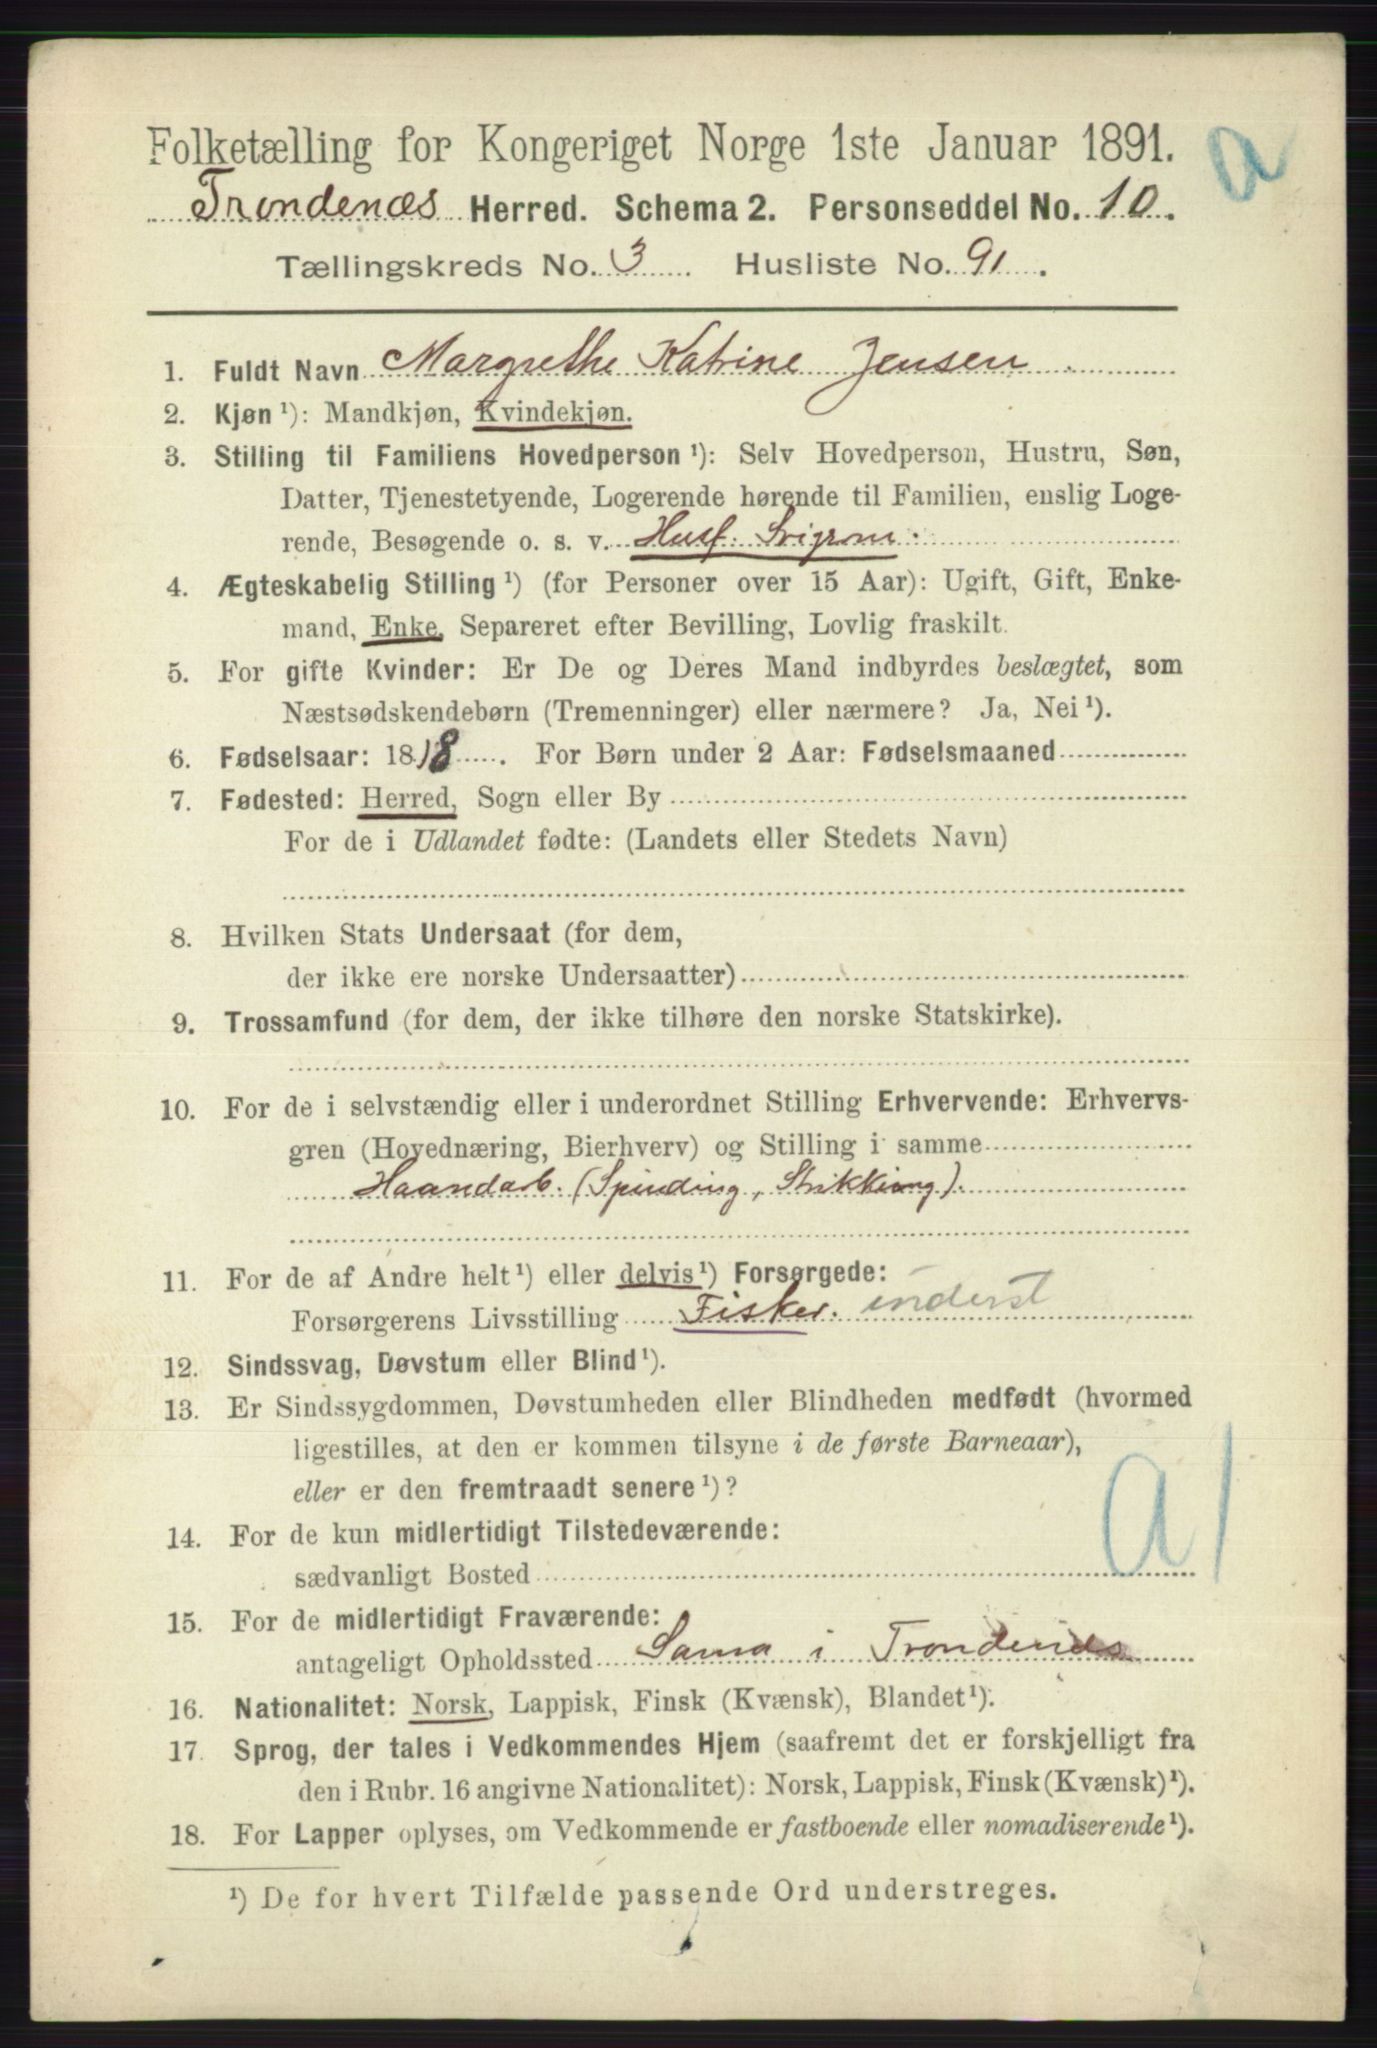 Folketælling for Kongeriget Norge 1ste Januar 1891.
a
Trondenæs Herred. Schema 2. Personseddel No. 10.
Tællingskreds No. 3 Husliste No. 91.
1. Fuldt Navn Margrethe Katrine Jensen
2. Kjøn ¹): Mandkjøn, Kvindekjøn.
3. Stilling til Familiens Hovedperson ¹): Selv Hovedperson, Hustru, Søn,
Datter, Tjenestetyende, Logerende hørende til Familien, enslig Loge-
rende, Besøgende o. s. v. Husf.
4. Ægteskabelig Stilling ¹) (for Personer over 15 Aar): Ugift, Gift, Enke-
mand, Enke, Separeret efter Bevilling, Lovlig fraskilt.
5. For gifte Kvinder: Er De og Deres Mand indbyrdes beslægtet, som
Næstsødskendebørn (Tremenninger) eller nærmere? Ja, Nei ¹).
6. Fødselsaar: 1818. For Børn under 2 Aar: Fødselsmaaned
7. Fødested: Herred, Sogn eller By
For de i Udlandet fødte: (Landets eller Stedets Navn)
8. Hvilken Stats Undersaat (for dem,
der ikke ere norske Undersaatter)
9. Trossamfund (for dem, der ikke tilhøre den norske Statskirke).
10. For de i selvstændig eller i underordnet Stilling Erhvervende: Erhvervs-
gren (Hovednæring, Bierhverv) og Stilling i samme
Haandarb. (Spinding, Strikking).
11. For de af Andre helt ¹) eller delvis ¹) Forsørgede:
Forsørgerens Livsstilling Fisker. inderst
12. Sindssvag, Døvstum eller Blind ¹).
13. Er Sindssygdommen, Døvstumheden eller Blindheden medfødt (hvormed
ligestilles, at den er kommen tilsyne i de første Barneaar),
eller er den fremtraadt senere ¹)?
a1
14. For de kun midlertidigt Tilstedeværende:
sædvanligt Bosted
15. For de midlertidigt Fraværende:
antageligt Opholdssted Sama i Trondenæs
16. Nationalitet: Norsk, Lappisk, Finsk (Kvænsk), Blandet ¹).
17. Sprog, der tales i Vedkommendes Hjem (saafremt det er forskjelligt fra
den i Rubr. 16 angivne Nationalitet): Norsk, Lappisk, Finsk (Kvænsk) ¹).
18. For Lapper oplyses, om Vedkommende er fastboende eller nomadiserende ¹).
¹) De for hvert Tilfælde passende Ord understreges.